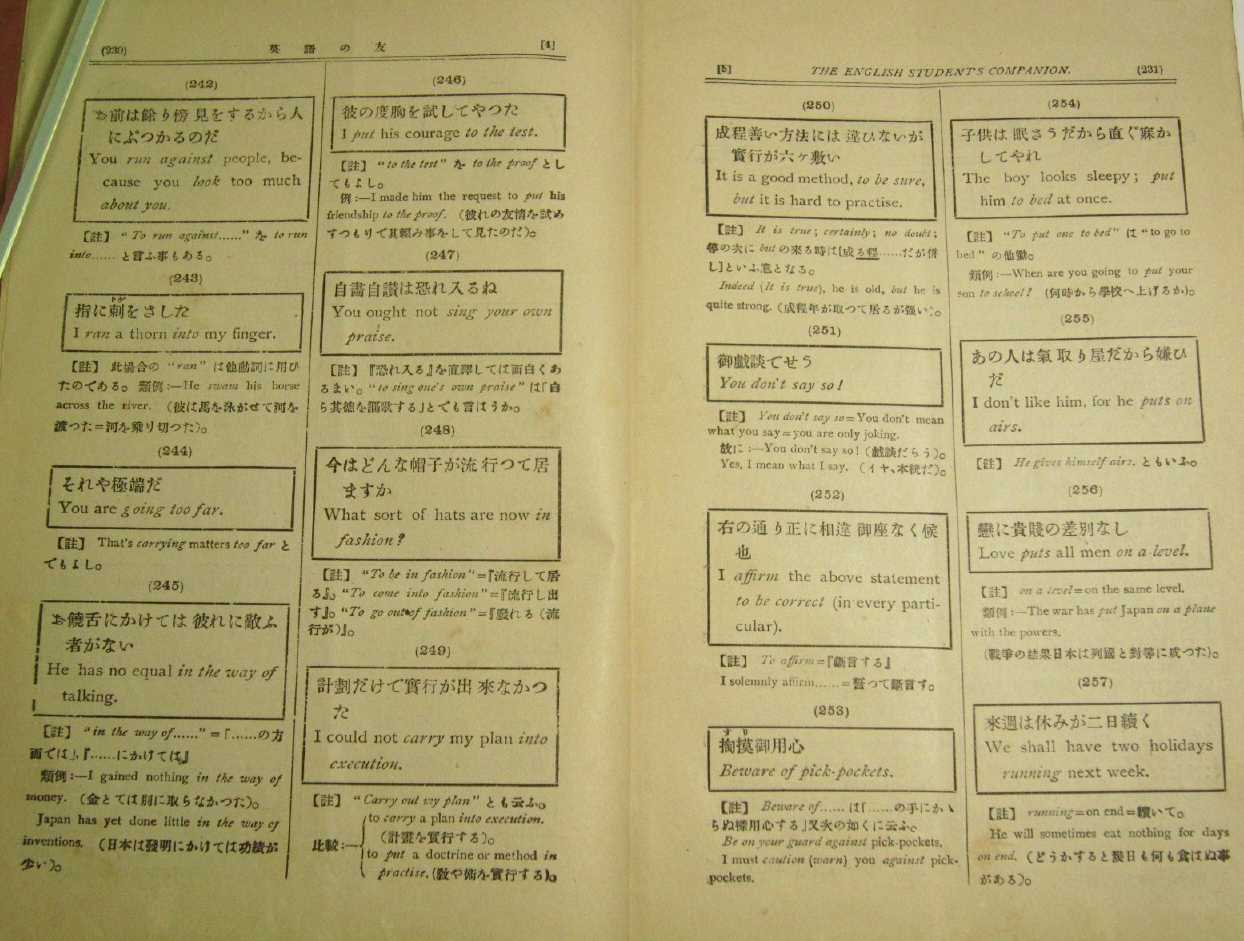 (230) 英語の友 [4]
(242)
前は餘り傍見をするから人
にぶつかるのだ
You run against people, be-
cause you look too much
about you.
【註】 “To run against......” を to run
into...... と言ふ事もある。
(243)
指に刺をさした
I ran a thorn into my finger.
【註】 此場合の “ran” は他動詞に用ひ
たのである。 類例:—He swam his horse
across the river. (彼は馬を泳がせて河を
渡つた=河を乗り切つた)。
(244)
それや極端だ
You are going too far.
【註】 That's carrying matters too far と
でもよし。
(245)
饒舌にかけては彼れに敵ふ
者がない
He has no equal in the way of
talking.
【註】 “in the way of......” =「......の方
面では」,『......にかけては』
類例:—I gained nothing in the way of
money. (金とては別に取らなかつた)。
Japan has yet done little in the way of
inventions. (日本は發明にかけては功績が
少い)。
(246)
彼の度胸を試してやつた
I put his courage to the test.
【註】 “to the test” を to the proof とし
てもよし。
例:—I made him the request to put his
friendship to the proof. (彼れの友情を試め
すつもりで其頼み事をして見たのだ)。
(247)
自畵自讃は恐れ入るね
You ought not sing your own
praise.
【註】 『恐れ入る』を直譯しては面白くあ
るまい。 “to sing one's own praise” は「自
ら其德を謳歌する」とでも言はうか。
(248)
今はどんな帽子が流行つて居
ますか
What sort of hats are now in
fashion?
【註】 “To be in fashion”=『流行して居
る』。 “To come into fashion”=『流行し出
す』。 “To go out of fashion”=『廢れる (流
行が)』。
(249)
計劃だけで實行が出來なかつ
た
I could not carry my plan into
execution.
【註】 “Carry out my plan” とも云ふ。
比較:—
to carry a plan into execution.
(計畫を實行する)。
to put a doctrine or method in
practise. (敎や術を實行する)。
[5] THE ENGLISH STUDENT'S COMPANION. (231)
(250)
成程善い方法には違ひないが
實行が六ヶ敷い
It is a good method, to be sure,
but it is hard to practise.
【註】 It is true; certainly; no doubt;
等の次に but の來る時は[成る程......だが併
し]といふ意となる。
Indeed (It is true), he is old, but he is
quite strong. (成程年が取つて居るが强い)。
(251)
御戯談でせう
You don't say so!
【註】 You don't say so=You don't mean
what you say=you are only joking.
故に:—You don't say so! (戯談だらう)。
Yes, I mean what I say. (イヤ、本統だ)。
(252)
右の通り正に相違御座なく候
也
I affirm the above statement
to be correct (in every parti-
cular).
【註】 To affirm=『斷言する』
I solemnly affirm......=誓つて斷言す。
(253)
すり
掏摸御用心
Beware of pick-pockets.
【註】 Beware of...... は「......の手にかゝ
らぬ樣用心する」又次の如くに云ふ。
Be on your guard against pick-pockets.
I must caution (warn) you against pick-
pockets.
(254)
子供は眠さうだから直ぐ寐か
してやれ
The boy looks sleepy; put
him to bed at once.
【註】 “To put one to bed” は “to go to
bed” の他働。
類例:—When are you going to put your
son to school? (何時から學校へ上げるか)。
(255)
あの人は氣取り屋だから嫌ひ
だ
I don't like him, for he puts on
airs.
【註】 He gives himself airs. ともいふ。
(256)
戀に貴賤の差別なし
Love puts all men on a level.
【註】 on a level=on the same level.
類例:—The war has put Japan on a plane
with the powers.
(戰爭の結果日本は列國と對等に成つた)。
(257)
來週は休みが二日續く
We shall have two holidays
running next week.
【註】 running=on end=續いて。
He will sometimes eat nothing for days
on end. (どうかすると幾日も何も食はぬ事
がある)。